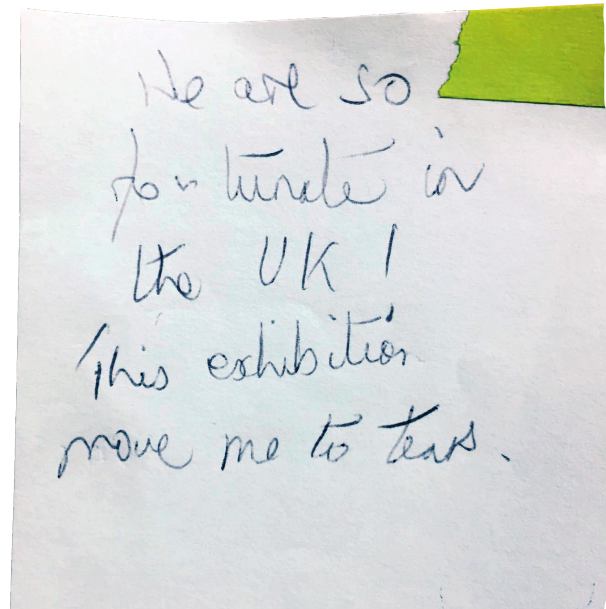 We are so
fortunate in
the UK!
This exhibition
move me to tears.